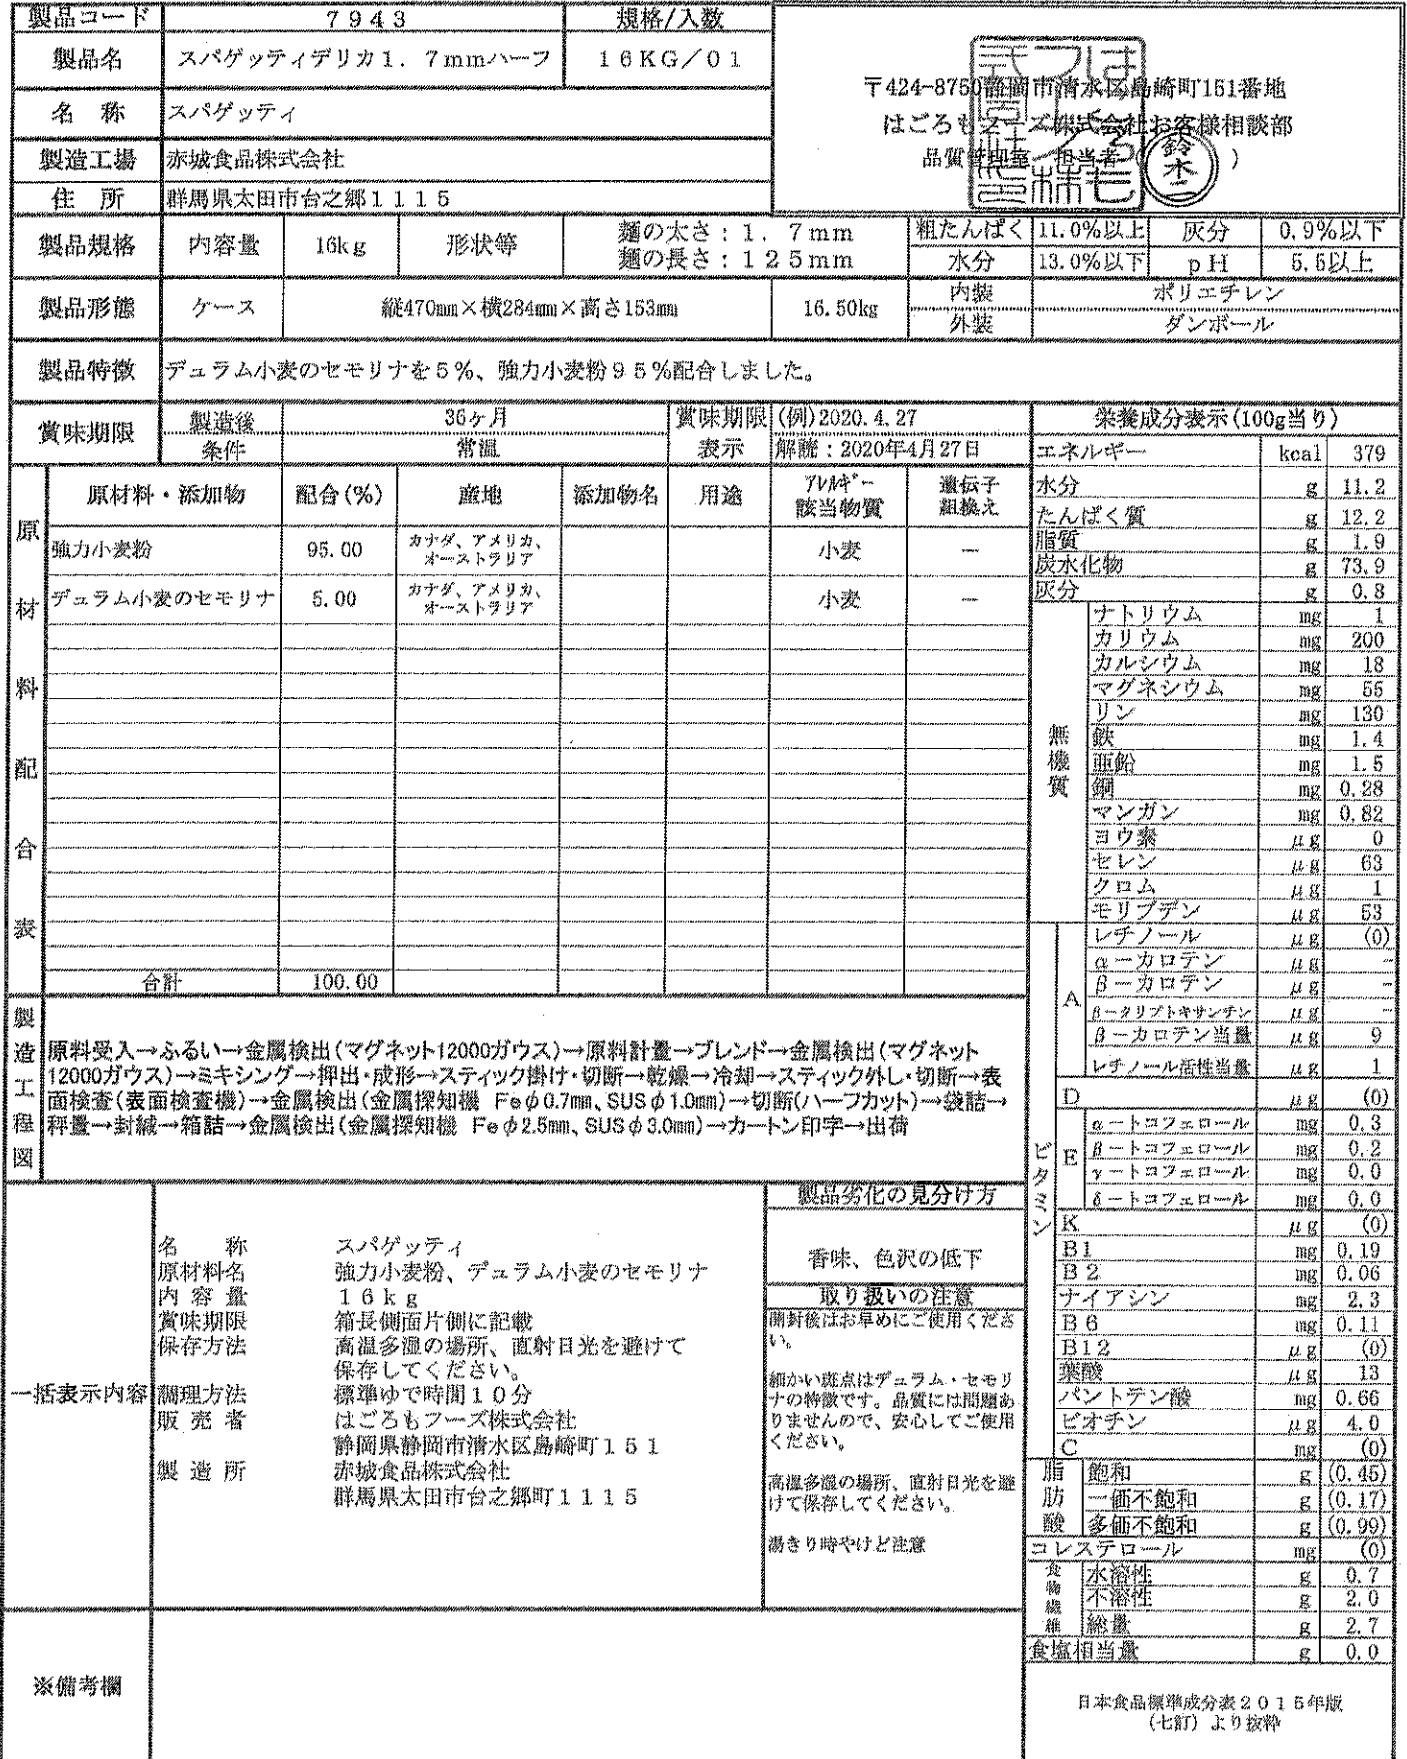 製品コード 7943 規格/入数
製品名 スパゲッティデリカ1．7mmハーフ 16KG／01
〒424-8750静岡市清水区島崎町151番地
はごろもフーズ株式会社お客様相談部
品質管理室 担当者( 鈴木 )
名 称 スパゲッティ
製造工場 赤城食品株式会社
住 所 群馬県太田市台之郷1115
製品規格 内容量 16kg 形状等 麺の太さ：1．7mm 粗たんぱく 11.0%以上 灰分 0.9%以下
麺の長さ：125mm 水分 13.0%以下 pH 5.5以上
製品形態 ケース 縦470mm×横284mm×高さ153mm 16.50kg 内装 ポリエチレン
外装 ダンボール
製品特徴 デュラム小麦のセモリナを5%、強力小麦粉95%配合しました。
賞味期限 製造後 36ヶ月 賞味期限 (例)2020.4.27
条件 常温 表示 解読：2020年4月27日
原材料配合表
原材料・添加物 配合(%) 産地 添加物名 用途 アレルギー該当物質 遺伝子組換え
強力小麦粉 95.00 カナダ、アメリカ、オーストラリア 小麦 ―
デュラム小麦のセモリナ 5.00 カナダ、アメリカ、オーストラリア 小麦 ―
合計 100.00
製造工程図
原料受入→ふるい→金属検出(マグネット12000ガウス)→原料計量→ブレンド→金属検出(マグネット
12000ガウス)→ミキシング→押出・成形→スティック掛け・切断→乾燥→冷却→スティック外し・切断→表
面検査(表面検査機)→金属検出(金属探知機 Feφ0.7mm、SUSφ1.0mm)→切断(ハーフカット)→袋詰→
秤量→封緘→箱詰→金属検出(金属探知機 Feφ2.5mm、SUSφ3.0mm)→カートン印字→出荷
一括表示内容
名 称 スパゲッティ
原材料名 強力小麦粉、デュラム小麦のセモリナ
内 容 量 16kg
賞味期限 箱長側面片側に記載
保存方法 高温多湿の場所、直射日光を避けて
保存してください。
調理方法 標準ゆで時間10分
販 売 者 はごろもフーズ株式会社
静岡県静岡市清水区島崎町151
製 造 所 赤城食品株式会社
群馬県太田市台之郷町1115
製品劣化の見分け方
香味、色沢の低下
取り扱いの注意
開封後はお早めにご使用くださ
い。
細かい斑点はデュラム・セモリ
ナの特徴です。品質には問題あ
りませんので、安心してご使用
ください。
高温多湿の場所、直射日光を避
けて保存してください。
湯きり時やけど注意
※備考欄
栄養成分表示(100g当り)
エネルギー kcal 379
水分 g 11.2
たんぱく質 g 12.2
脂質 g 1.9
炭水化物 g 73.9
灰分 g 0.8
無機質
ナトリウム mg 1
カリウム mg 200
カルシウム mg 18
マグネシウム mg 55
リン mg 130
鉄 mg 1.4
亜鉛 mg 1.5
銅 mg 0.28
マンガン mg 0.82
ヨウ素 μg 0
セレン μg 63
クロム μg 1
モリブデン μg 53
ビタミン
A レチノール μg (0)
α－カロテン μg -
β－カロテン μg -
β－クリプトキサンチン μg -
β－カロテン当量 μg 9
レチノール活性当量 μg 1
D μg (0)
E α－トコフェロール mg 0.3
β－トコフェロール mg 0.2
γ－トコフェロール mg 0.0
δ－トコフェロール mg 0.0
K μg (0)
B1 mg 0.19
B2 mg 0.06
ナイアシン mg 2.3
B6 mg 0.11
B12 μg (0)
葉酸 μg 13
パントテン酸 mg 0.66
ビオチン μg 4.0
C mg (0)
脂肪酸
飽和 g (0.45)
一価不飽和 g (0.17)
多価不飽和 g (0.99)
コレステロール mg (0)
食物繊維
水溶性 g 0.7
不溶性 g 2.0
総量 g 2.7
食塩相当量 g 0.0
日本食品標準成分表2015年版
(七訂) より抜粋